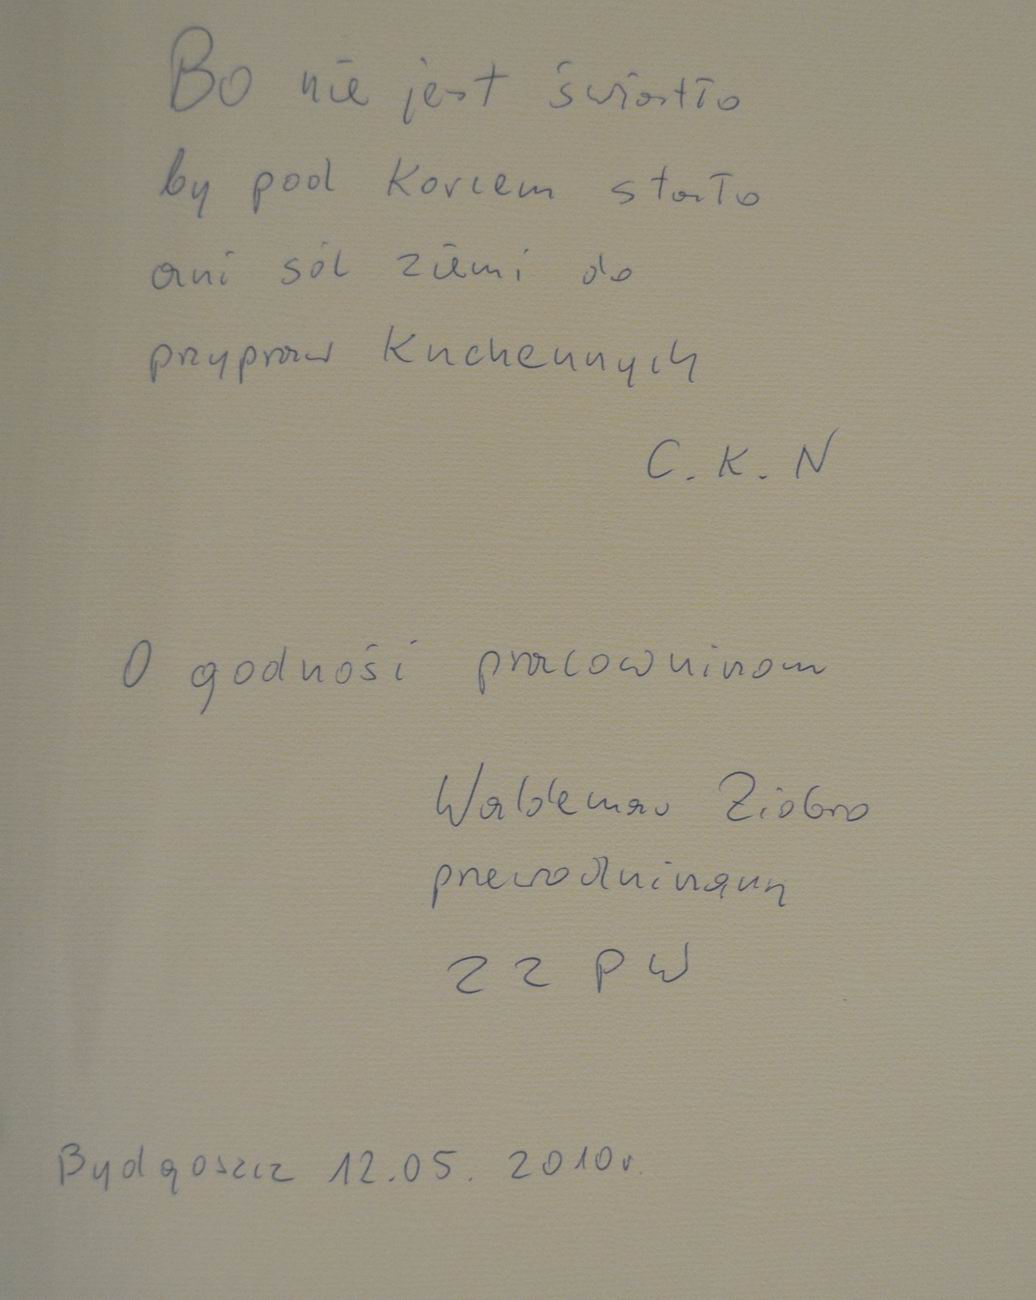 Bo nie jest światło
by pod Korcem stało
ani sól ziemi do
przypraw Kuchennych
C. K. N
O godności pracowniczom
Waldemar Ziobro
ZZ PW
Bydgoszcz 12.05. 2010r.